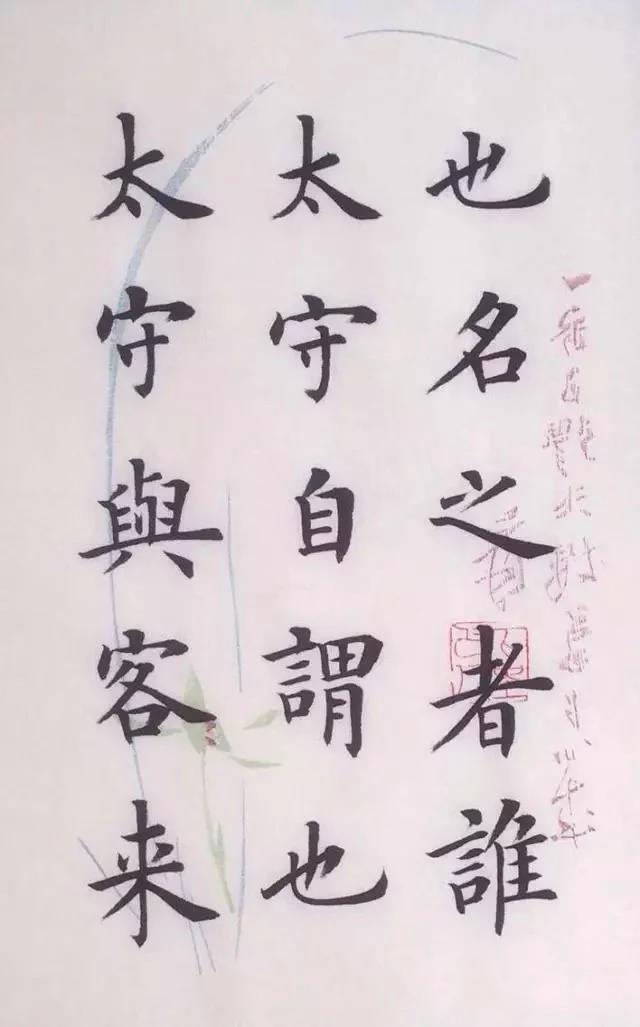 也名之者誰
太守自謂也
太守與客来